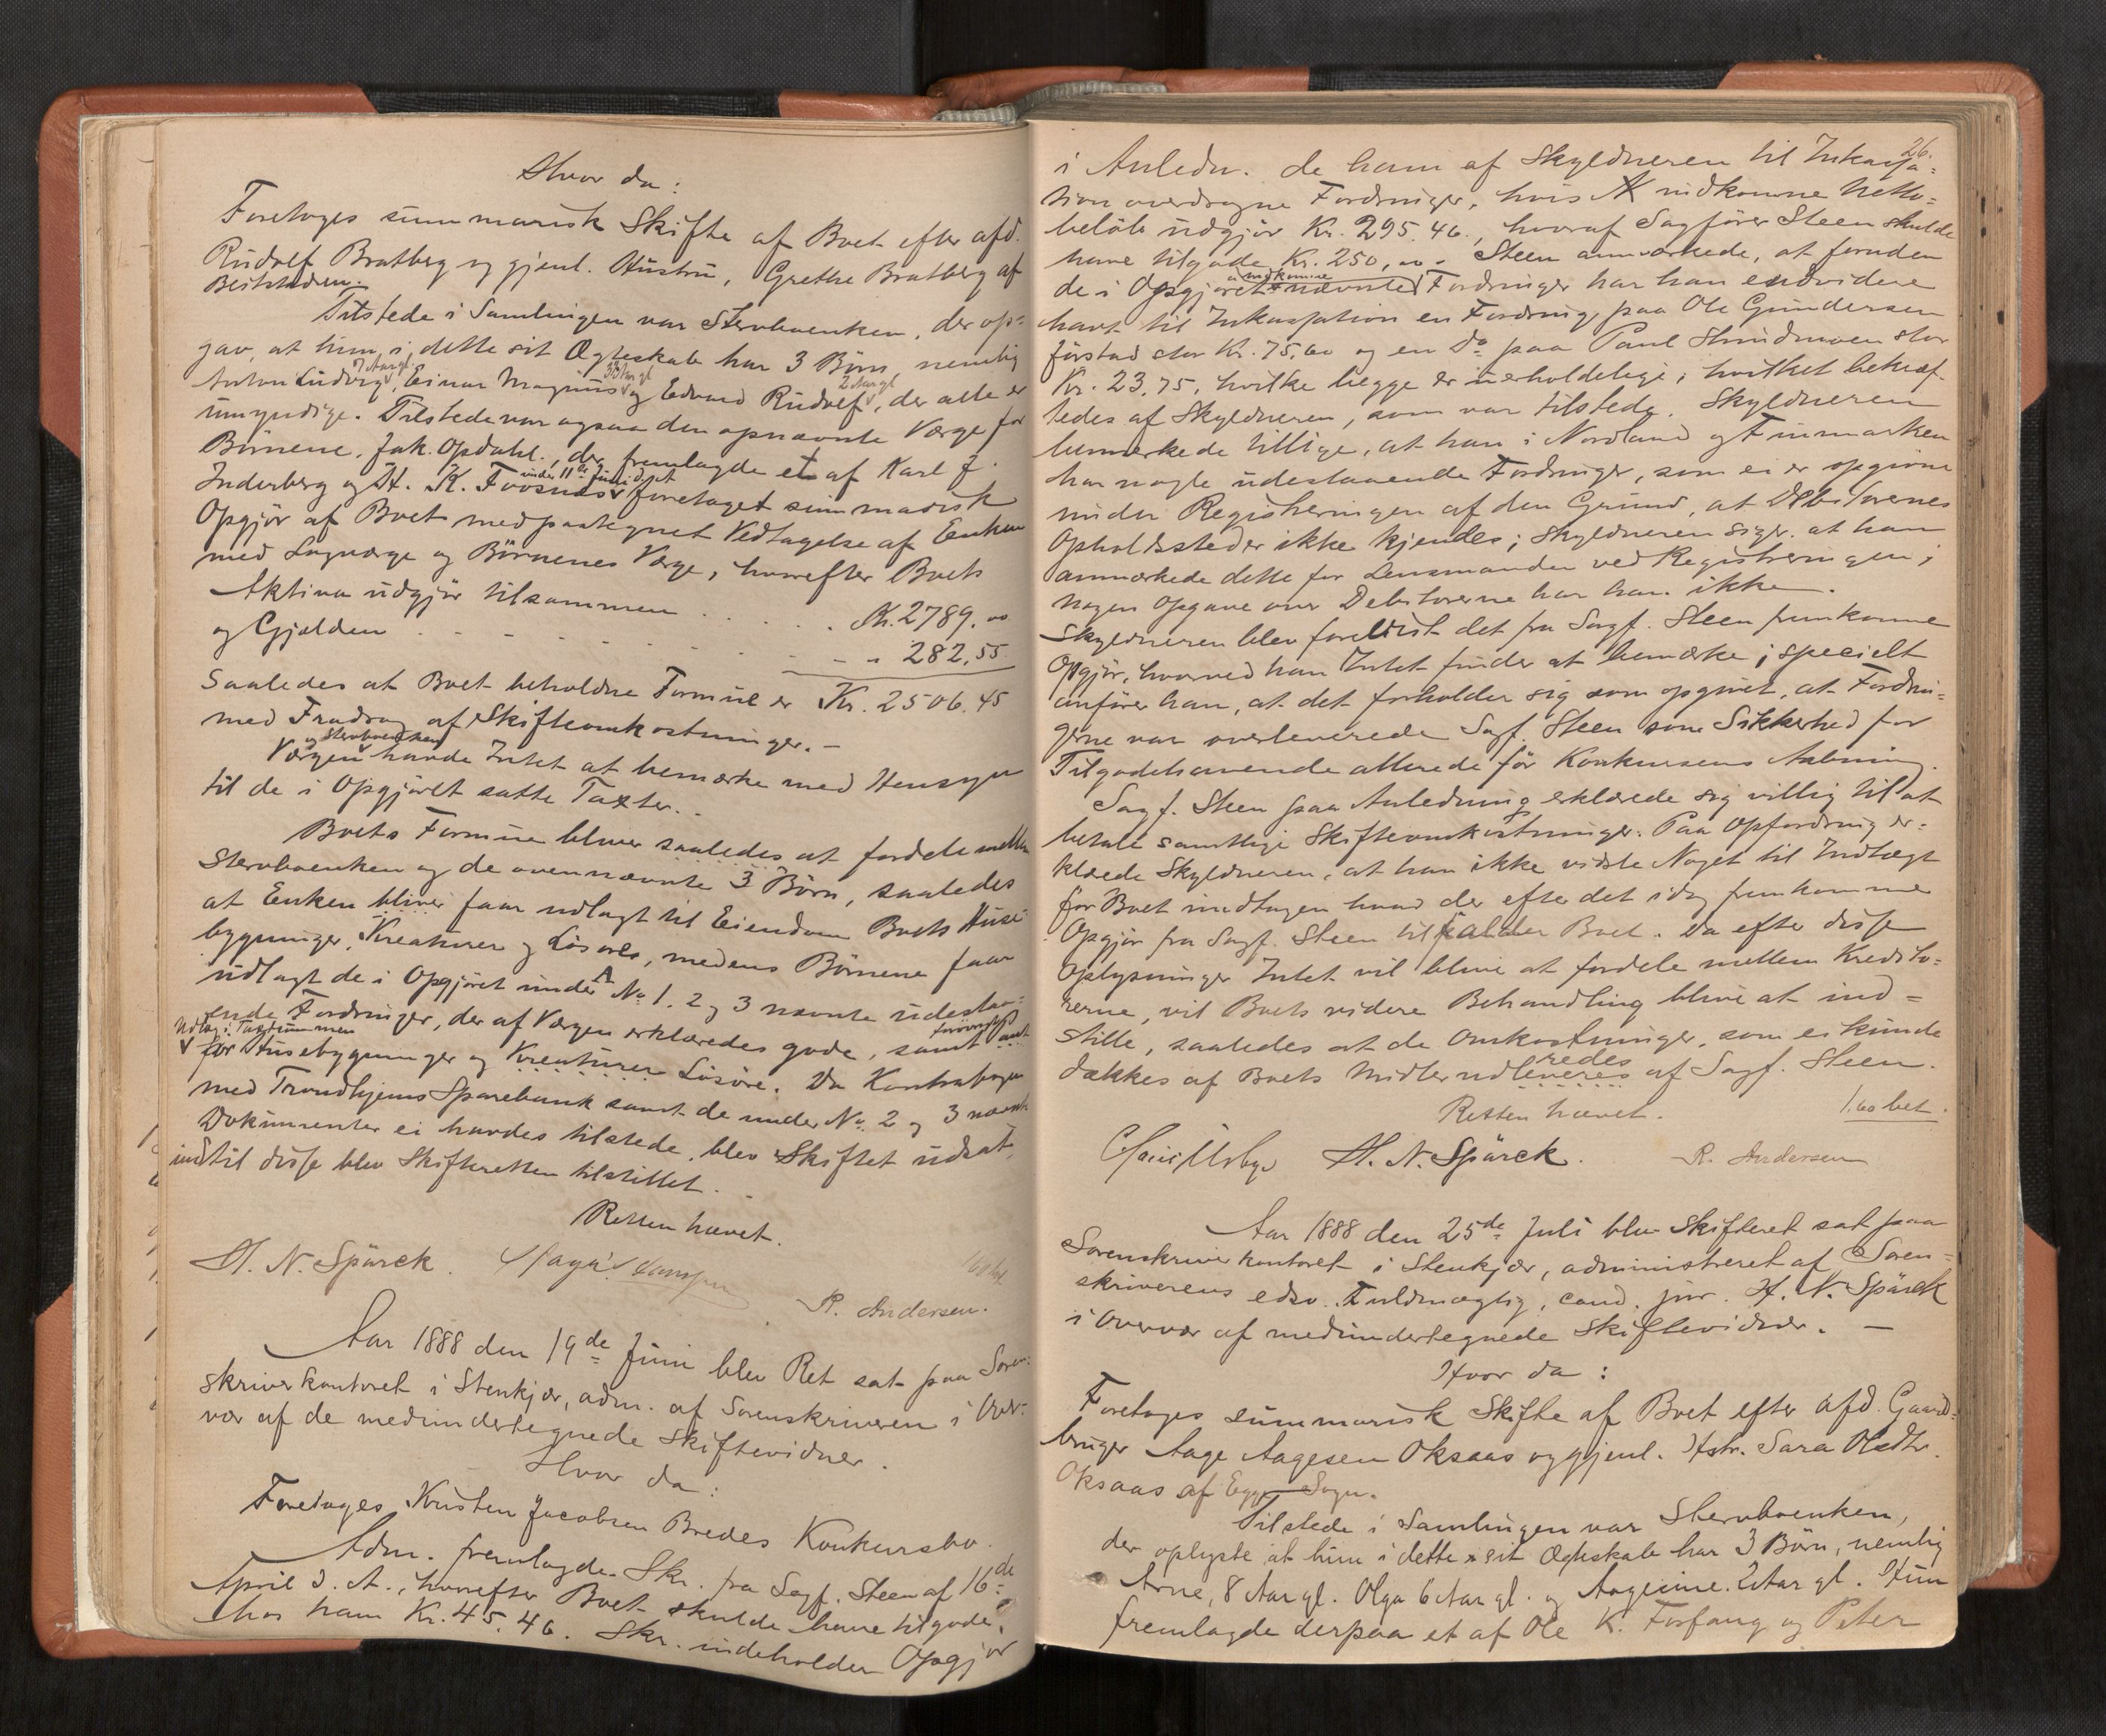 Hvor da:
Foretoges summarisk Skifte af Boet efter afd.
Rudolf Bratberg og gjenl. Hustru, Grethe Bratberg af
Beitstaden.
Tilstede i Samlingen var Stervboenken, der op=
gav, at hun i dette sit Ægteskab har 3 Börn, nemlig
7 Aar gl 2 Aar gl
Anton Ludvig, Einar Magnus og Edvard Rudolf, der alle er
umyndige. Tilstede var ogsaa den opnævnte Værge for
Börnene, Jak. Opdahl, der fremlagde et af Karl J.
under 11te Juni d. A.
Inderberg og H. K. Foosnæs foretaget summarisk
Opgjör af Boet med paategnet Vedtagelse af Enken
med Laugværge og Börnenes Værge, hvorefter Boets
Aktiva udgjör tilsammen . . . . . Kr. 2789,00
og Gjælden . . . . . . . . - " 282,55
Saaledes at Boet beholdne Formue er Kr. 2506,45
med Fradrag af Skifteomkostninger. –
og Stervboenken
Værgen havde Intet at bemærke med Hensyn
til de i Opgjöret satte Taxter.
Boets Formue bliver saaledes at fordele mellem
Stervboenken og de ovennævnte 3 Börn, saaledes
at Enken bliver faar udlagt til Eiendom Boets Huse
bygninger, Kreaturer og Lösöre, medens Börnene faar
udlagt de i Opgjöret under A No 1, 2 og 3 nævnte udestaa=
ende Fordringer, der af Værgen erklæredes gode, samt Pant
Udlæg i Taxtsummen forövrigt
for Husebygninger og Kreaturer Lösöre. Da Kontrabogen
med Trondhjems Sparebank samt de under No 2 og 3 nævnte
Dokumenter ei havdes tilstede, blev Skiftet udsat,
indtil disse blev Skifteretten tilstillet.
Retten hævet.
H. N. Spärck.
R. Andersen.
Aar 1888 den 19de Juni blev Ret sat paa Soren=
skriverkontoret i Stenkjær, adm. af Sorenskriveren i Over=
vær af de medundertegnede Skiftevidner.
Hvor da:
Foretoges Kristen Jacobsen Bredes Konkursbo.
Adm. fremlagde Skr. fra Sagf. Steen af 16de
April d. A., hvorefter Boet skulde have tilgode
hos ham Kr. 45,46. Skr. indeholder Opgjör
26.
i Anledn. de ham af Skyldneren til Inkassa=
tion overdragne Fordringer, hvis indkomne Netto=
belöb udgjör Kr. 295.46., hvoraf Sagförer Steen skulde
have tilgode Kr. 250,00. Steen anmærkede, at foruden
indkomne
de i Opgjöret nævnte Fordringer har han endvidere
havt til Inkassation en Fordring paa Ole Gundersen
Förstad stor Kr. 75,60 og en do paa Paul Strindmoen stor
Kr. 23,75, hvilke begge er uerholdelige; hvilket bekræf-
tedes af Skyldneren, som var tilstede. Skyldneren
bemærkede tillige, at han i Nordland og Finmarken
har nogle udestaaende Fordringer, som ei er opgivne
under Registreringen af den Grund, at Debitorenes
Opholdssteder ikke kjendes; Skyldneren siger, at han
anmærkede dette for Lensmanden ved Registreringen;
nogen Opgave over Debitorerne har han ikke.
Skyldneren blev forelæst det fra Sagf. Steen fremkomne
Opgjör, hvorved han Intet finder at bemærke; specielt
anförer han, at det forholder sig som opgivet, at Fordrin=
gerne var overleverede Sagf. Steen som Sikkerhed for
Tilgodehavende allerede för Konkursens Aabning.
Sagf. Steen paa Anledning erklærede sig villig til at
betale samtlige Skifteomkostninger. Paa Opfordring er=
klærede Skyldneren, at han ikke vidste Noget til Indtægt
for Boet undtagen hvad der efter det idag fremkomne
Opgjör fra Sagf. Steen tilfalder Boet. Da efter disse
Oplysninger Intet vil blive at fordele mellem Kredito=
rerne, vil Boets videre Behandling blive at ind=
stille, saaledes at de Omkostninger, som ei kunde
dækkes af Boets Midler udredes af Sagf. Steen.
Retten hævet.
1.60 bet.
H. N. Spärck.
R. Andersen
Aar 1888 den 25de Juli blev Skifteret sat paa
Sorenskriverkontoret i Stenkjær, administreret af Soren=
skriverens edsv. Fuldmægtig, cand. jur. H. N. Spärck
i Overvær af medundertegnede Skiftevidner. –
Hvor da:
Foretoges summarisk Skifte af Boet efter afd. Gaard=
bruger Aage Aagesen Oksaas og gjenl. Hstr. Sara Olsdtr.
Oksaas af Egge Sogn.
Tilstede i Samlingen var Stervboenken,
der oplyste at hun i dette sit Ægteskab har 3 Börn, nemlig
Arne, 8 Aar gl. Olga 6 Aar gl. og Aagerine 2 Aar gl. Hun
fremlagde derpaa et af Ole K. Forfang og Peter